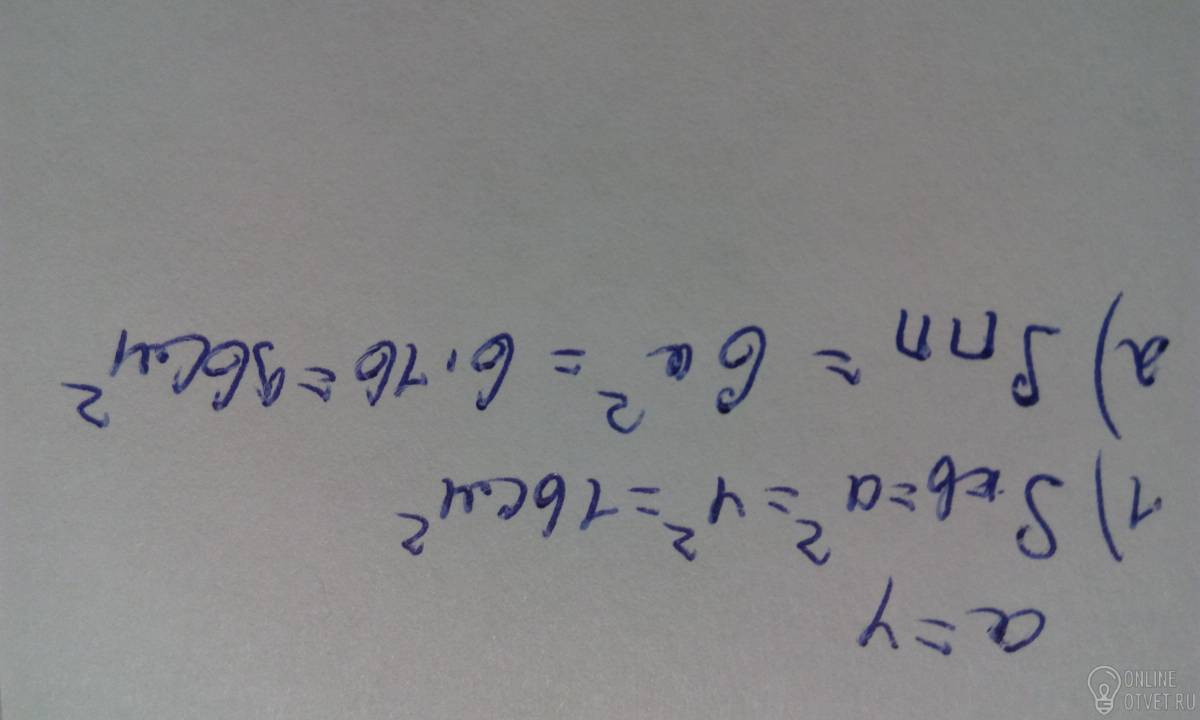 a = 4
1) Sкв = a² = 4² = 16 см²
а) Sпп = 6a² = 6 · 16 = 96 см²
ONLINE
OTVET.RU